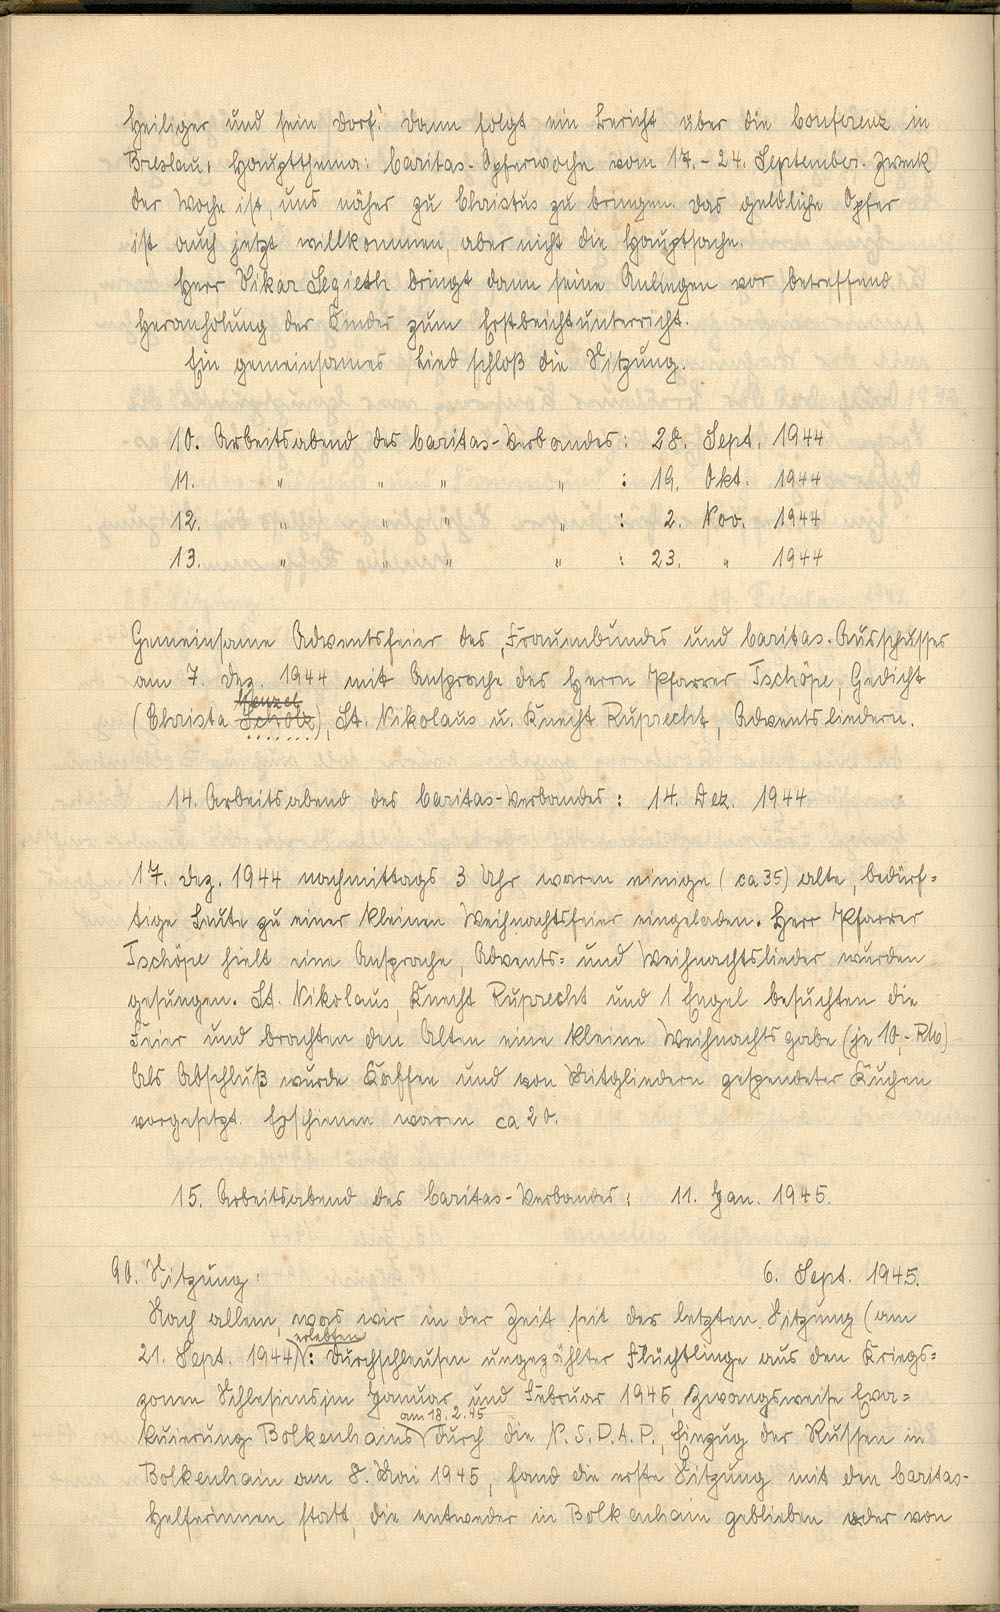 Heiliger und sein Dorf." Dann folgt ein Bericht über die Conferenz in
Breslau, Hauptthema: Caritas-Opferwoche vom 17.-24. September. Zweck
der Woche ist, uns näher zu Christus zu bringen. Das geldliche Opfer
ist auch jetzt willkommen, aber nicht die Hauptsache.
Herr Vikar Segieth bringt dann seine Anliegen vor betreffend
Heranholung der Kinder zum Erstbeichtunterricht.
Ein gemeinsames Lied schloß die Sitzung.
10. Arbeitsabend des Caritas-Verbandes: 28. Sept. 1944
11. " " " " : 19. Okt. 1944
12. " " " " : 2. Nov. 1944
13. " " " " : 23. " 1944
Gemeinsame Adventsfeier des Frauenbundes und Caritas-Ausschusses
am 7. Dez. 1944 mit Ansprache des Herrn Pfarrer Tschöpe, Gedicht
(Christa Scholz), St. Nikolaus u. Knecht Ruprecht, Adventsliedern.
14. Arbeitsabend des Caritas-Verbandes: 14. Dez. 1944
17. Dez. 1944 nachmittags 3 Uhr waren einige (ca 35) alte, bedürf=
tige Leute zu einer kleinen Weihnachtsfeier eingeladen. Herr Pfarrer
Tschöpe hielt eine Ansprache, Advents= und Weihnachtslieder wurden
gesungen. St. Nikolaus, Knecht Ruprecht und 1 Engel besuchten die
Feier und brachten den Alten eine kleine Weihnachtsgabe (je 10,- RM)
Als Abschluß wurde Kaffee und von Mitgliedern gespendeter Kuchen
vorgesetzt. Erschienen waren ca 20.
15. Arbeitsabend des Caritas-Verbandes: 11. Jan. 1945.
90. Sitzung: 6. Sept. 1945.
Nach allem, was wir in der Zeit seit der letzten Sitzung (am
21. Sept. 1944) erlebten: Durchschleusen ungezählter Flüchtlinge aus den Kriegs=
zonen Schlesiens im Januar und Februar 1945, Zwangsweise Eva=
kuierung Bolkenhains am 18.2.45 durch die N.S.D.A.P., Einzug der Russen in
Bolkenhain am 8. Mai 1945, fand die erste Sitzung mit den Caritas-
Helferinnen statt, die entweder in Bolkenhain geblieben oder von